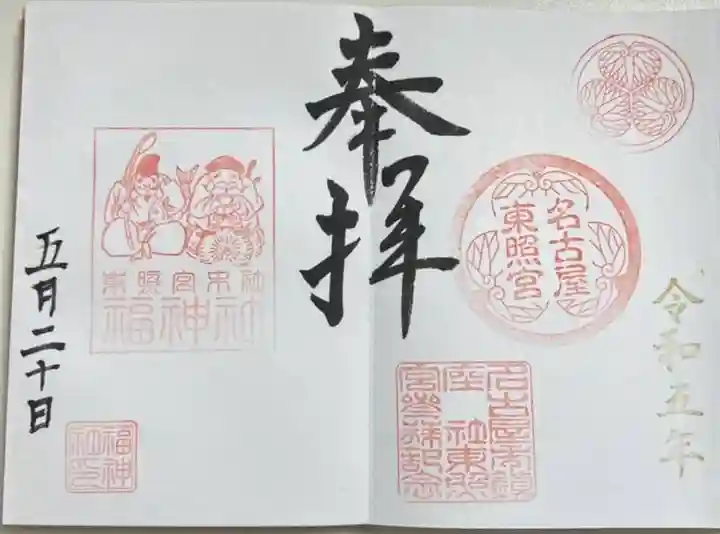 令和五年
名古屋
東照宮
名古屋市鎮
座 社東照
宮参拝記念
奉拝
東照宮末社
福神社
福神
社印
五月二十日